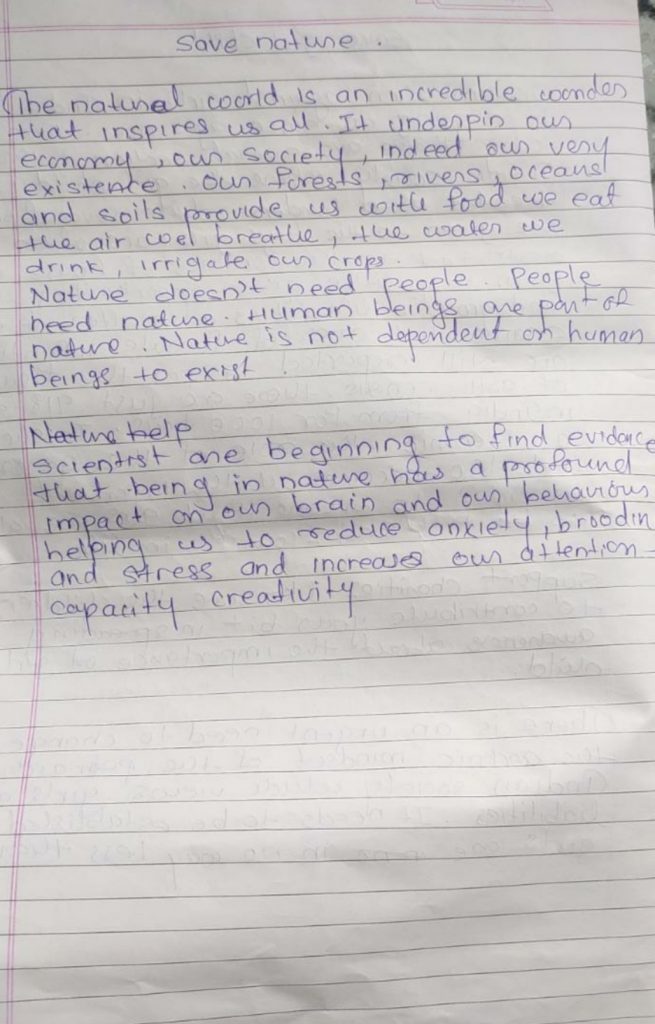 Save nature.
The natural world is an incredible wonder
that inspires us all. It underpin our
economy, our society, indeed our very
existence. Our forests, rivers, oceans
and soils provide us with food we eat
the air wel breathe, the water we
drink, irrigate our crops.
Nature doesn't need people. People
need nature. Human beings are part of
nature. Nature is not dependent on human
beings to exist.
Nature help
scientist are beginning to find evidence
that being in nature has a profound
impact on our brain and our behaviour
helping us to reduce anxiety, broodin
and stress and increases our attention
capacity creativity